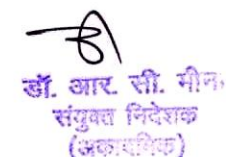 डॉ. आर. सी. मीना
संयुक्त निदेशक
(अकादमिक)